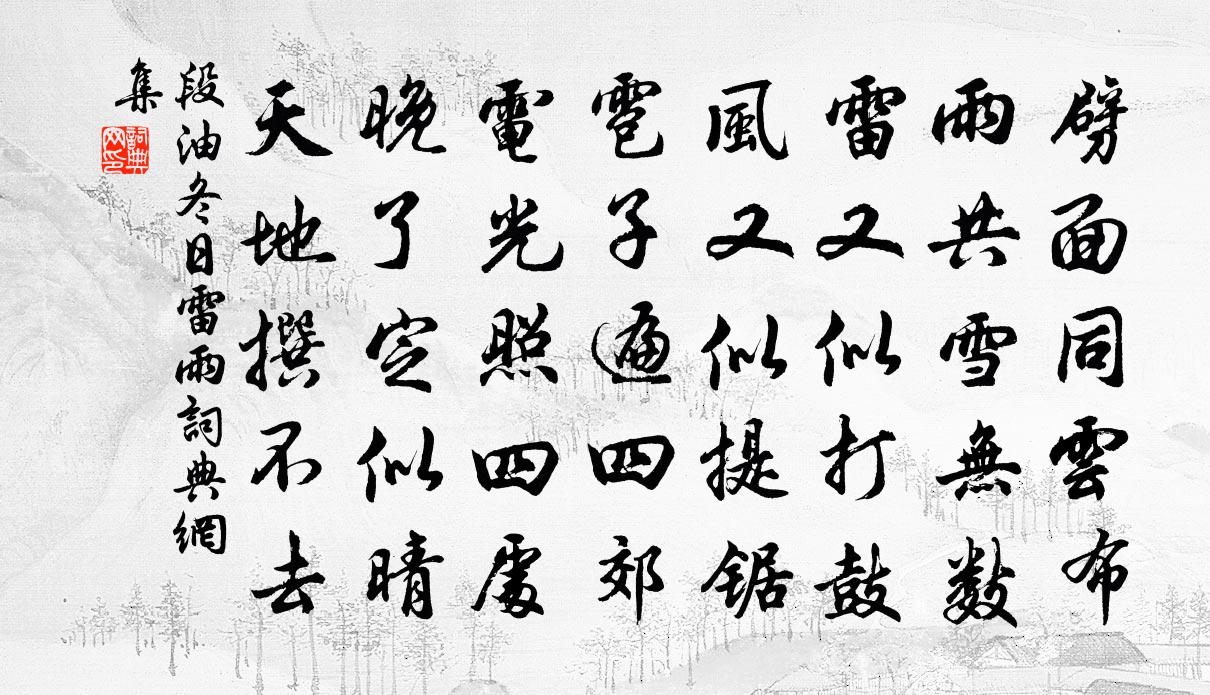 劈面同雲布
雨共雪無數
雷又似打鼓
風又似提锯
雹子遍四郊
電光照四處
晚了定似晴
天地撰不去
段油冬日雷雨詞典網
集
詞典
网印